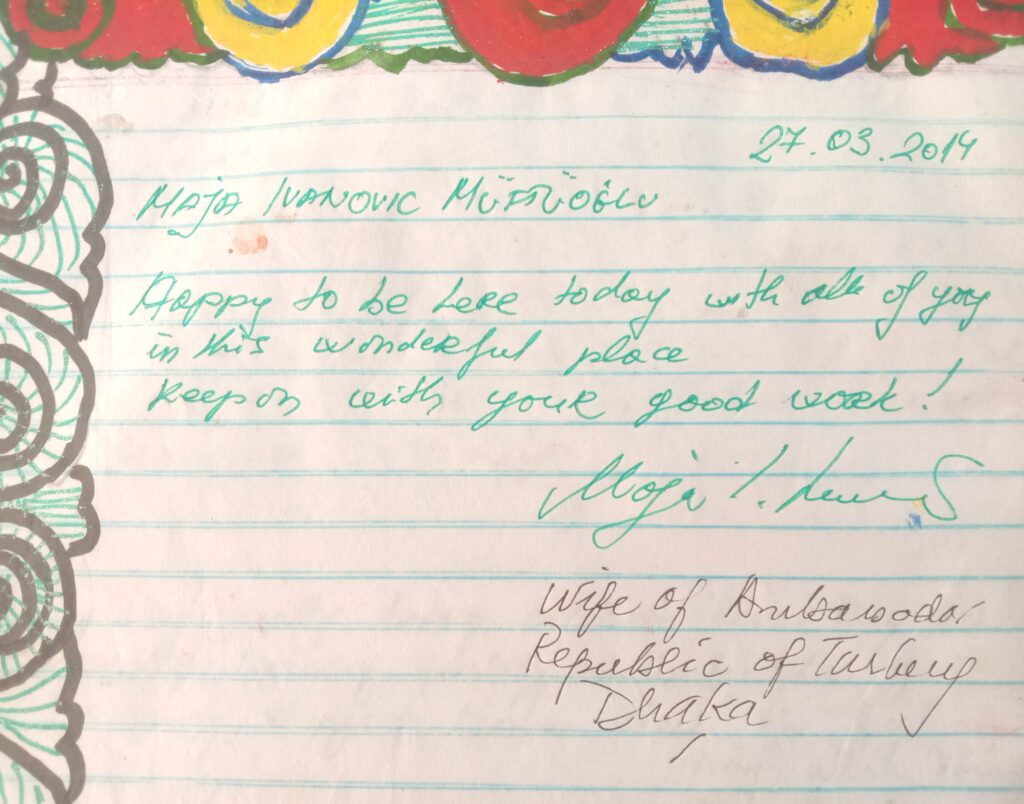 27.03.2014
MAJA IVANOVIC MÜFTÜOĞLU
Happy to be here today with all of you
in this wonderful place
keep on with your good work!
Maja I.
Wife of Ambassador
Republic of Turkey
Dhaka